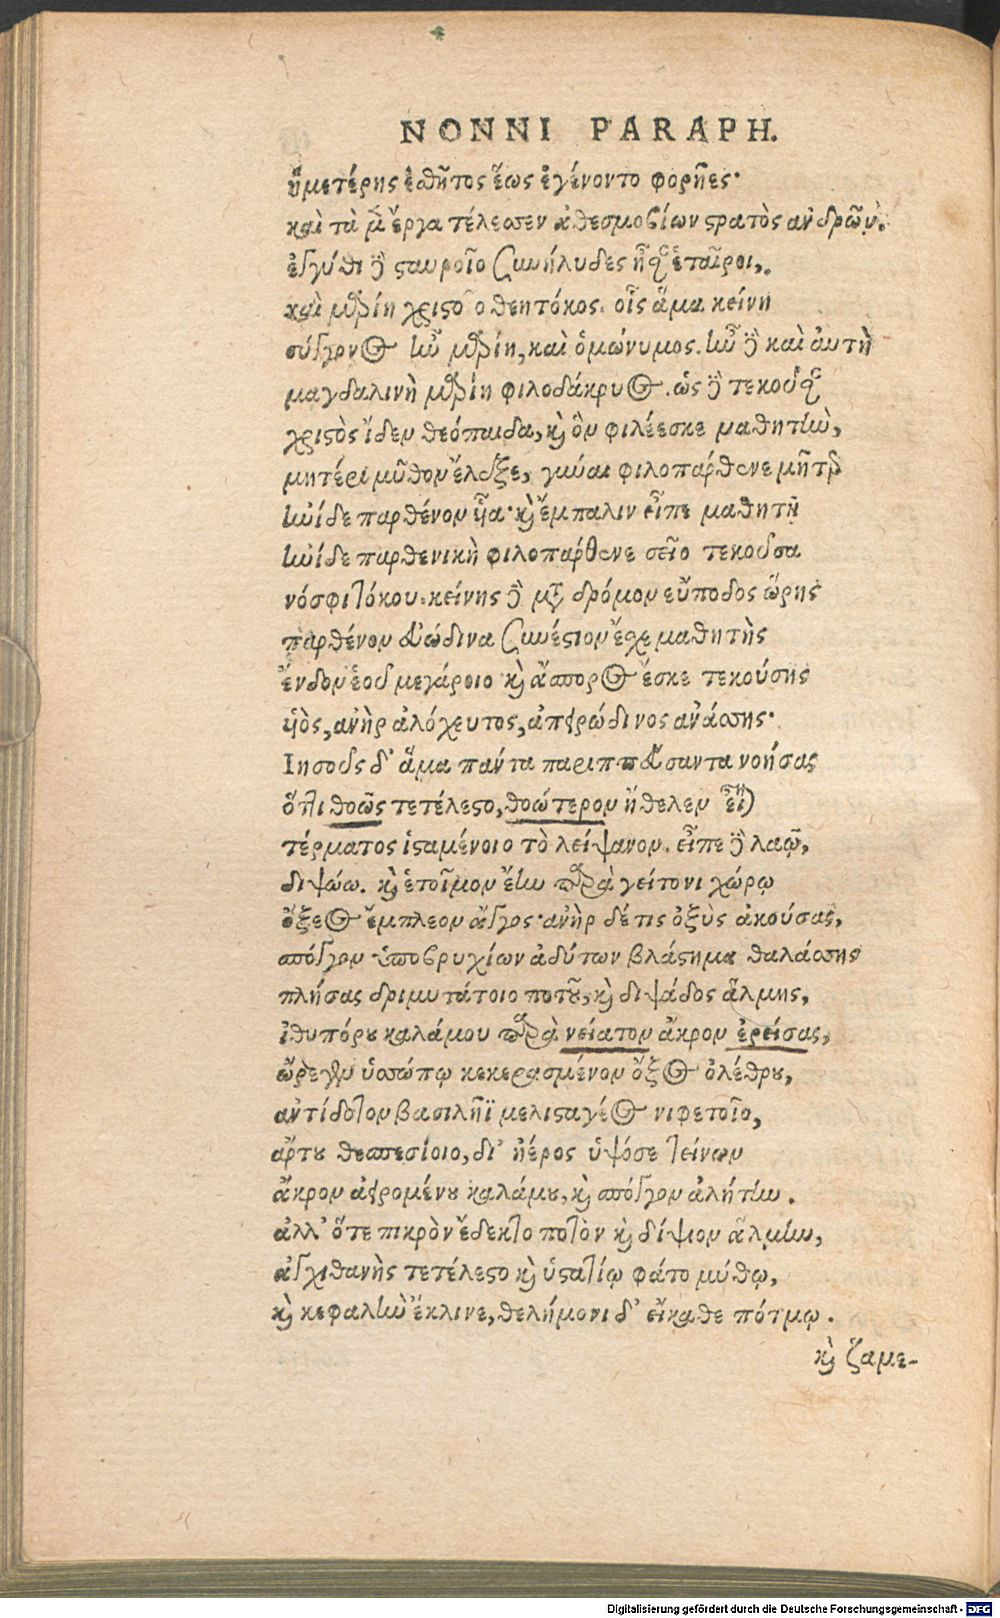 NONNI PARAPH.
ἡμετέρης ἐσθῆτος ἕως ἐγένοντο φορῆες·
καὶ τὰ μὲν ἔργα τέλεσσεν ἀθεσμοβίων στρατὸς ἀνδρῶν.
ἐγγύθι δὲ σταυροῖο συνήλυδες ἦσαν ἑταῖροι,
καὶ μαρίη χριστοῖο θεητόκος. οἷς ἅμα κείνη
σύγγονος ἦν μαρίη, καὶ ὁμώνυμος. ἦν δὲ καὶ αὐτὴ
μαγδαλινὴ μαρίη φιλοδάκρυος. ὡς δὲ τεκοῦσαν
χριστὸς ἴδεν θεόπαιδα, καὶ ὃν φιλέεσκε μαθητὴν,
μητέρι μῦθον ἔλεξε, γύναι φιλοπάρθενε μῆτερ
ἠνίδε παρθένον υἷα· καὶ ἔμπαλιν εἶπε μαθητῇ
ἠνίδε παρθενικὴ φιλοπάρθενε σεῖο τεκοῦσα
νόσφι τόκου. κείνης δὲ μετὰ δρόμον εὔποδος ὥρης
παρθένον εὐώδινα συνέστιον ἔσχε μαθητὴς
ἔνδον ἑοῦ μεγάροιο καὶ ἄσπορος ἔσκε τεκούσης
υἱὸς, ἀνὴρ ἀλόχευτος, ἀπειρώδινος ἀνάσσης·
Ιησοῦς δ' ἅμα πάντα παριππεύσαντα νοήσας
ὅττι θοῶς τετέλεστο, θοώτερον ἤθελεν εἶναι
τέρματος ἱσταμένοιο τὸ λείψανον. εἶπε δὲ λαῷ,
διψώω. καὶ ἑτοῖμον ἔην παρὰ γείτονι χώρῳ
ὄξεος ἔμπλεον ἄγγος· ἀνὴρ δέ τις ὀξὺς ἀκούσας,
σπόγγον ὑποβρυχίων ἀδύτων βλάστημα θαλάσσης
πλήσας δριμυτάτοιο ποτοῦ, καὶ διψάδος ἅλμης,
ἰθυπόρου καλάμου παρὰ νείατον ἄκρον ἐρείσας,
ὤρεγεν ὑσσώπῳ κεκερασμένον ὄξος ὀλέθρου,
ἀντίδοτον βασιλῆϊ μελισταγέος νιφετοῖο,
ἄρτου θεσπεσίοιο, δι' ἠέρος ὑψόσε τείνων
ἄκρον ἀειρομένου καλάμου, καὶ σπόγγον ἀλήτην.
ἀλλ' ὅτε πικρὸν ἔδεκτο ποτὸν καὶ δίψιον ἅλμην,
ἀγχιθανὴς τετέλεστο καὶ ὑστατίῳ φάτο μύθῳ,
καὶ κεφαλὴν ἔκλινε, θελήμονι δ' εἴκαθε πότμῳ.
καὶ ζαμε-
Digitalisierung gefördert durch die Deutsche Forschungsgemeinschaft - DFG